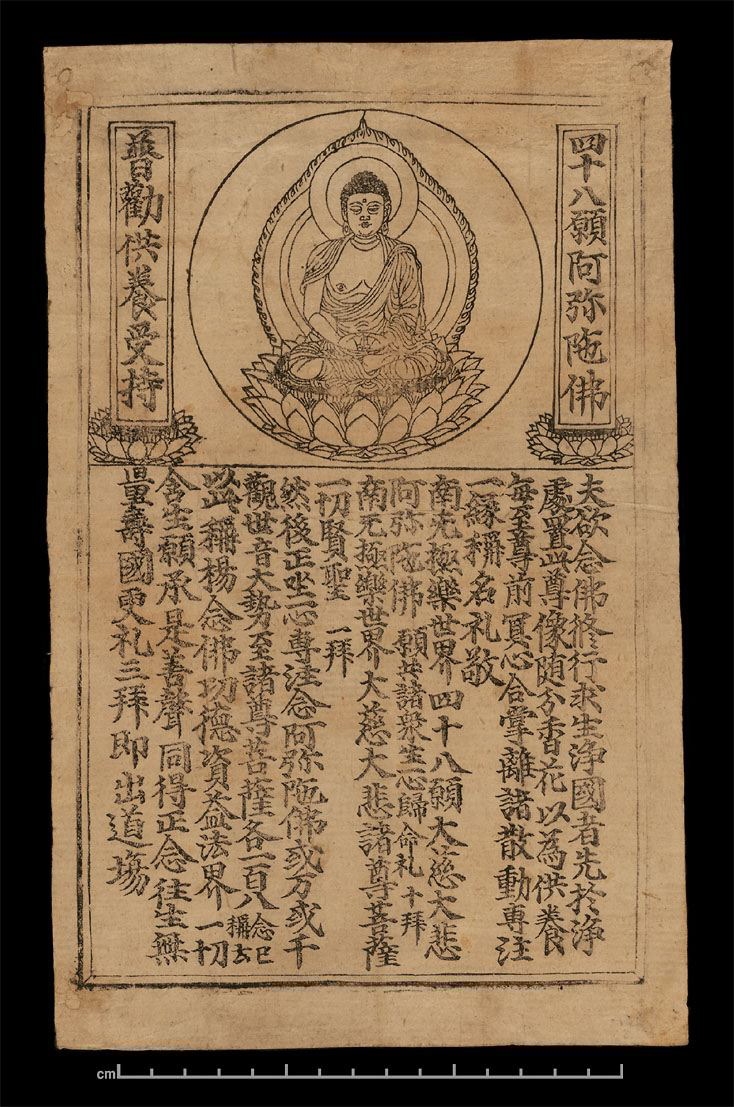 四十八願阿弥陁佛
普勸供養受持
夫欲念佛修行求生淨國者先於淨
處置此尊像随分香花以為供養
每至尊前冥心合掌離諸散動專注
一緣稱名礼敬
南无極樂世界四十八願大慈大悲
阿弥陁佛 願共諸衆生一心歸命礼十拜
南无極樂世界大慈大悲諸尊菩薩
一切賢聖 一拜
然後正坐一心專注念阿弥陁佛或万或千
觀世音大勢至諸尊菩薩各一百八 念已稱云
以此稱揚念佛功德資益法界一切
含生願承是善聲同得正念往生無
量壽國更礼三拜即出道塲
cm